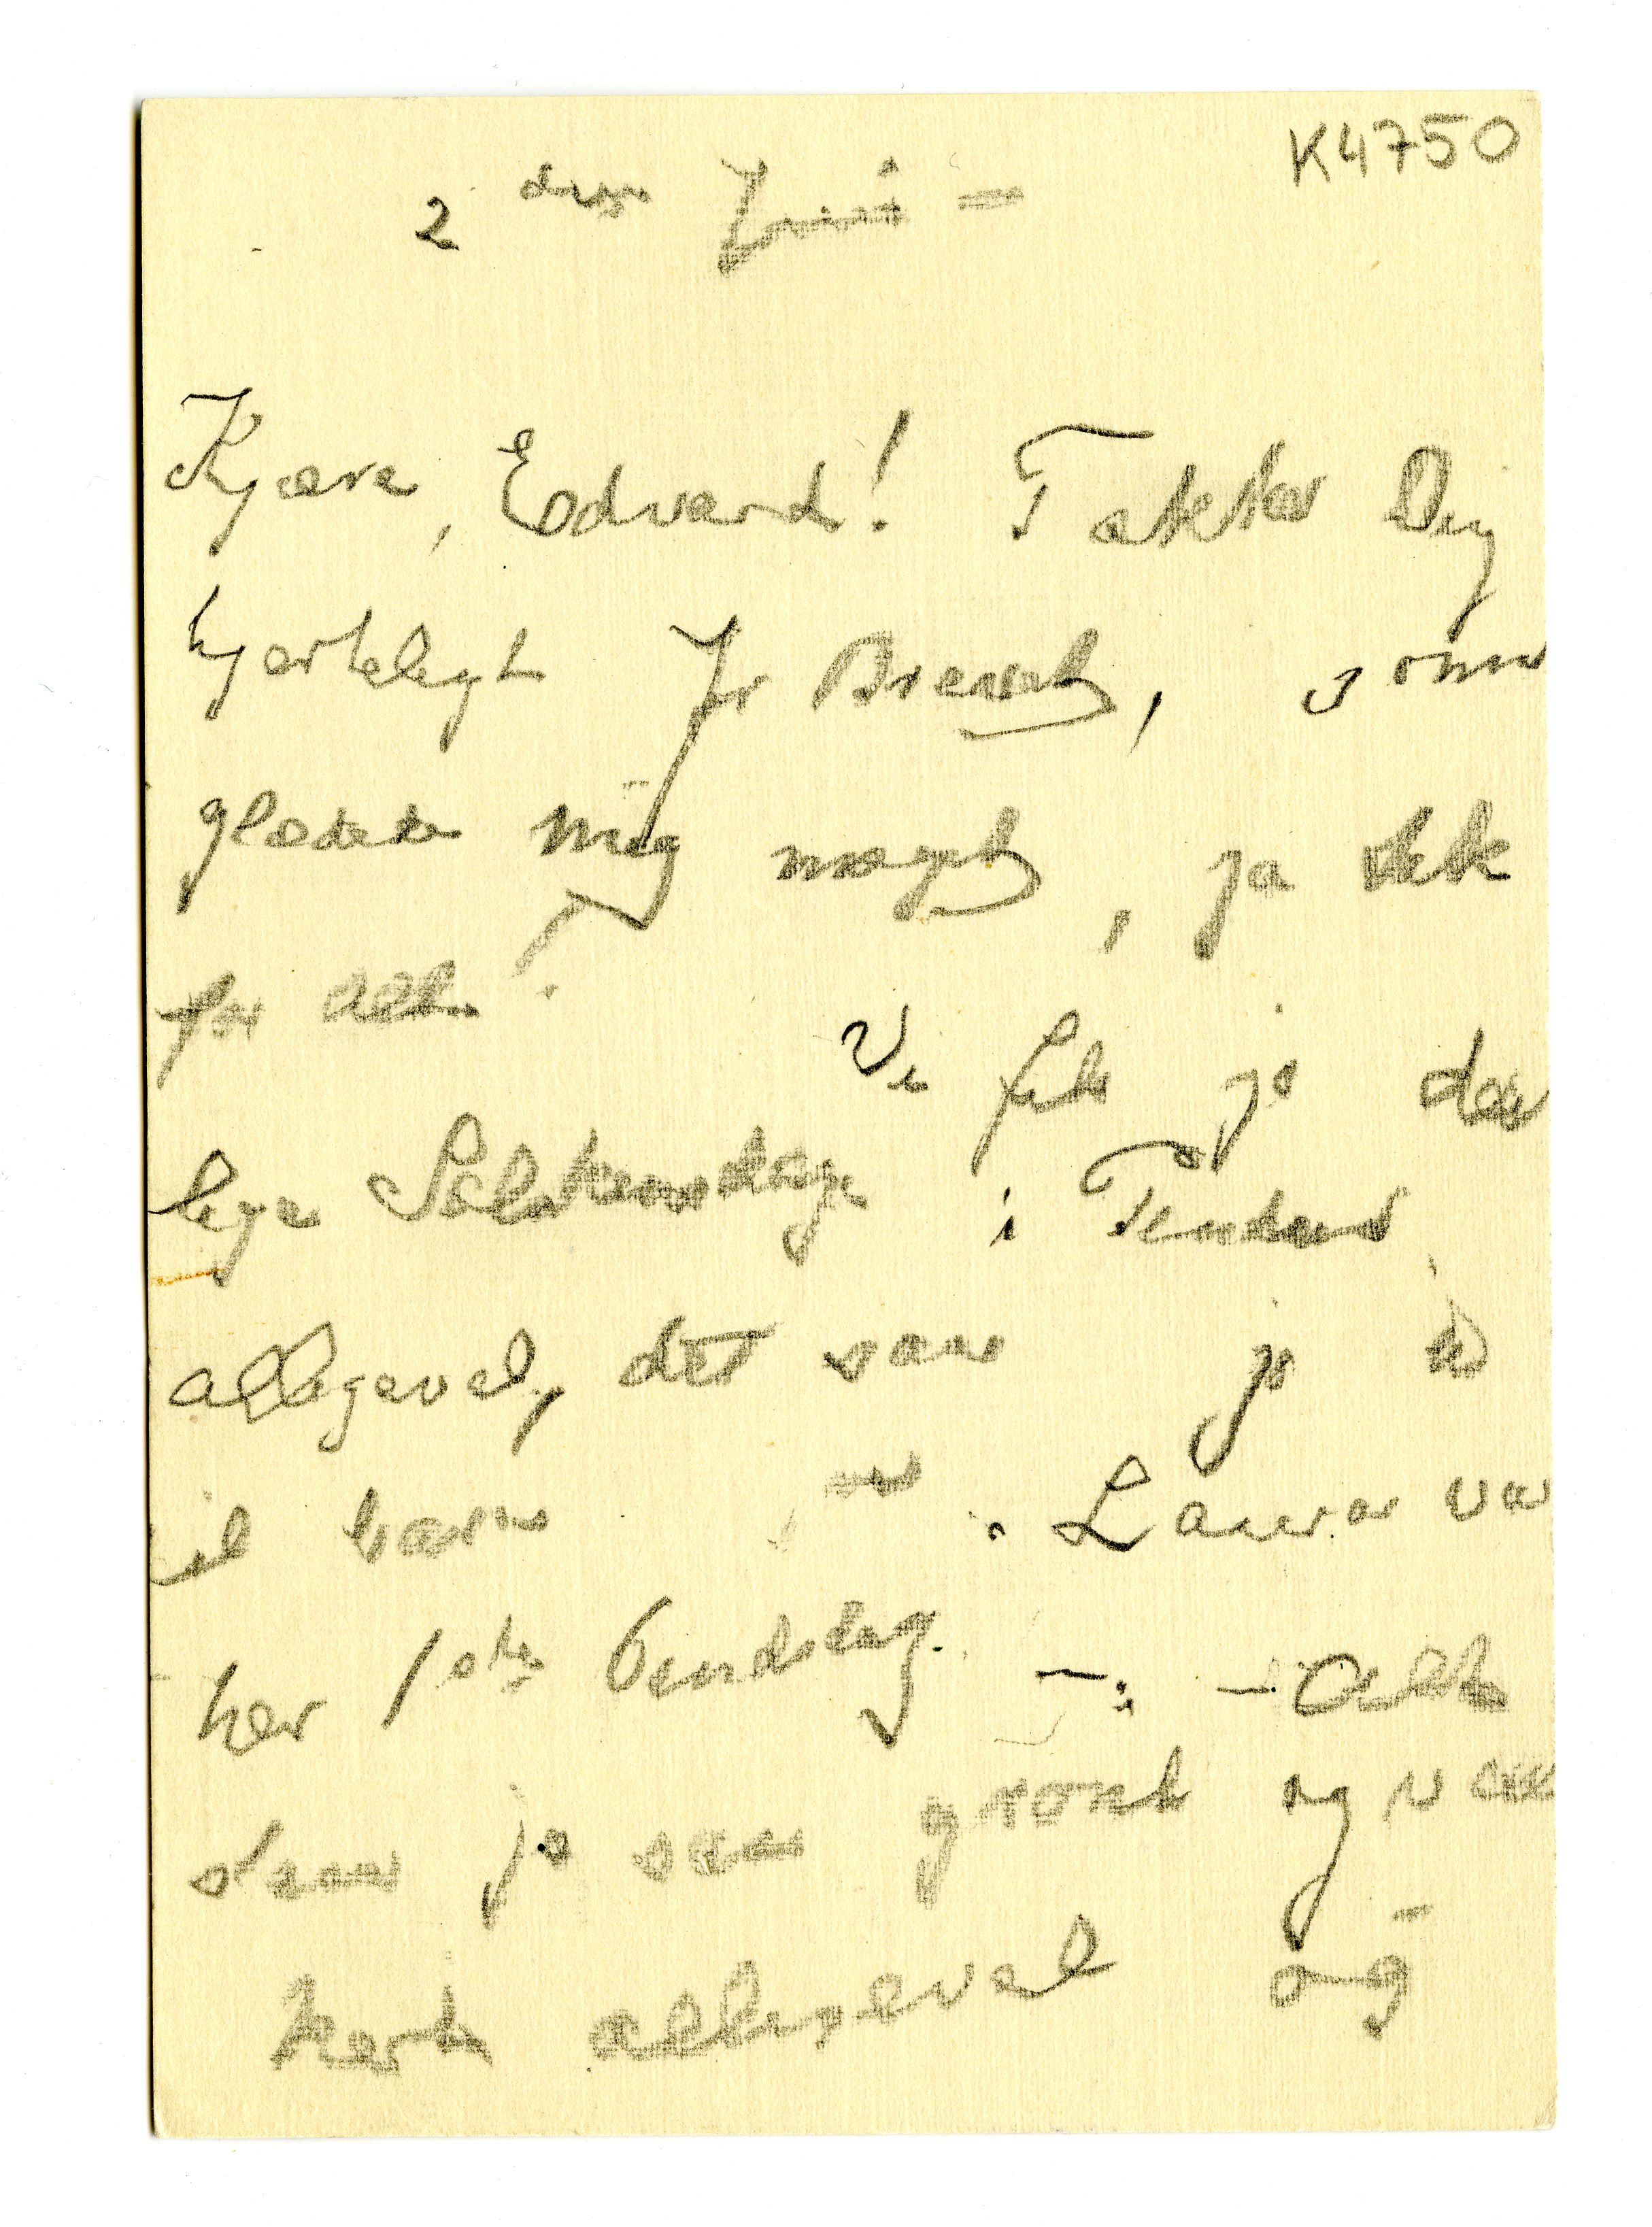 K4750
2 den Juni =
Kjære, Edvard! Takker Dig
hjerteligt for Brevet, som
glædede mig meget, ja tak
for alt!
Vi fik jo dei
lige Solskinsdage i Tender
alligevel, det var jo
Laura var
her 1ste Onsdag. Alt
staar jo saa grönt og va
kert alligevel og